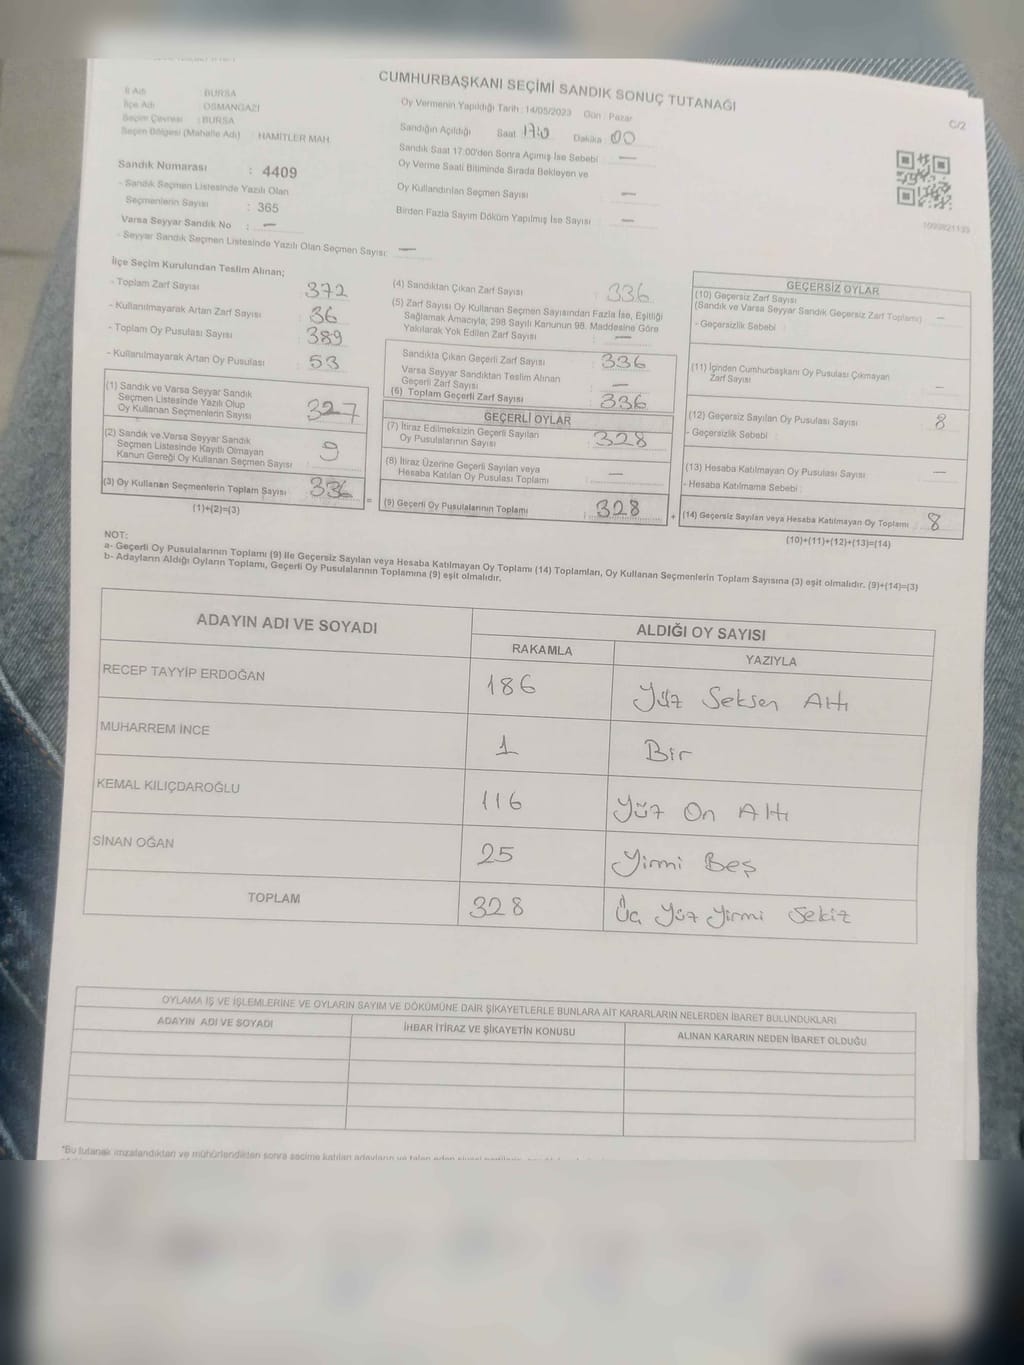 CUMHURBAŞKANI SEÇİMİ SANDIK SONUÇ TUTANAĞI
C/2
İl Adı : BURSA
İlçe Adı : OSMANGAZİ
Seçim Çevresi : BURSA
Seçim Bölgesi (Mahalle Adı) : HAMİTLER MAH.
Oy Vermenin Yapıldığı Tarih : 14/05/2023 Gün : Pazar
Sandığın Açıldığı Saat Dakika : 00
Sandık Saat 17:00'den Sonra Açılmış İse Sebebi —
Oy Verme Saati Bitiminde Sırada Bekleyen ve
Oy Kullandırılan Seçmen Sayısı —
Birden Fazla Sayım Döküm Yapılmış İse Sayısı —
Sandık Numarası : 4409
- Sandık Seçmen Listesinde Yazılı Olan
Seçmenlerin Sayısı : 365
Varsa Seyyar Sandık No : —
- Seyyar Sandık Seçmen Listesinde Yazılı Olan Seçmen Sayısı: —
İlçe Seçim Kurulundan Teslim Alınan;
- Toplam Zarf Sayısı 372
- Kullanılmayarak Artan Zarf Sayısı 36
- Toplam Oy Pusulası Sayısı 389
- Kullanılmayarak Artan Oy Pusulası : 53
(1) Sandık ve Varsa Seyyar Sandık
Seçmen Listesinde Yazılı Olup
Oy Kullanan Seçmenlerin Sayısı 327
(2) Sandık ve Varsa Seyyar Sandık
Seçmen Listesinde Kayıtlı Olmayan
Kanun Gereği Oy Kullanan Seçmen Sayısı 9
(3) Oy Kullanan Seçmenlerin Toplam Sayısı 336
(1)+(2)=(3)
=
(4) Sandıktan Çıkan Zarf Sayısı : 336
(5) Zarf Sayısı Oy Kullanan Seçmen Sayısından Fazla İse, Eşitliği
Sağlamak Amacıyla; 298 Sayılı Kanunun 98. Maddesine Göre
Yakılarak Yok Edilen Zarf Sayısı : —
Sandıkta Çıkan Geçerli Zarf Sayısı : 336
Varsa Seyyar Sandıktan Teslim Alınan
Geçerli Zarf Sayısı : —
(6) Toplam Geçerli Zarf Sayısı : 336
GEÇERLİ OYLAR
(7) İtiraz Edilmeksizin Geçerli Sayılan
Oy Pusulalarının Sayısı : 328
(8) İtiraz Üzerine Geçerli Sayılan veya
Hesaba Katılan Oy Pusulası Toplamı : —
(9) Geçerli Oy Pusulalarının Toplamı : 328
+
GEÇERSİZ OYLAR
(10) Geçersiz Zarf Sayısı
(Sandık ve Varsa Seyyar Sandık Geçersiz Zarf Toplamı) : —
- Geçersizlik Sebebi :
(11) İçinden Cumhurbaşkanı Oy Pusulası Çıkmayan
Zarf Sayısı : —
(12) Geçersiz Sayılan Oy Pusulası Sayısı : 8
- Geçersizlik Sebebi :
(13) Hesaba Katılmayan Oy Pusulası Sayısı : —
- Hesaba Katılmama Sebebi :
(14) Geçersiz Sayılan veya Hesaba Katılmayan Oy Toplamı : 8
(10)+(11)+(12)+(13)=(14)
NOT:
a- Geçerli Oy Pusulalarının Toplamı (9) ile Geçersiz Sayılan veya Hesaba Katılmayan Oy Toplamı (14) Toplamları, Oy Kullanan Seçmenlerin Toplam Sayısına (3) eşit olmalıdır. (9)+(14)=(3)
b- Adayların Aldığı Oyların Toplamı, Geçerli Oy Pusulalarının Toplamına (9) eşit olmalıdır.
ADAYIN ADI VE SOYADI ALDIĞI OY SAYISI
RAKAMLA YAZIYLA
RECEP TAYYİP ERDOĞAN 186 Yüz Seksen Altı
MUHARREM İNCE 1 Bir
KEMAL KILIÇDAROĞLU 116 Yüz On Altı
SİNAN OĞAN 25 Yirmi Beş
TOPLAM 328 Üç Yüz Yirmi Sekiz
OYLAMA İŞ VE İŞLEMLERİNE VE OYLARIN SAYIM VE DÖKÜMÜNE DAİR ŞİKAYETLERLE BUNLARA AİT KARARLARIN NELERDEN İBARET BULUNDUKLARI
ADAYIN ADI VE SOYADI İHBAR İTİRAZ VE ŞİKAYETİN KONUSU ALINAN KARARIN NEDEN İBARET OLDUĞU
"Bu tutanak imzalandıktan ve mühürlendikten sonra seçime katılan adayların ve talep eden siyasi